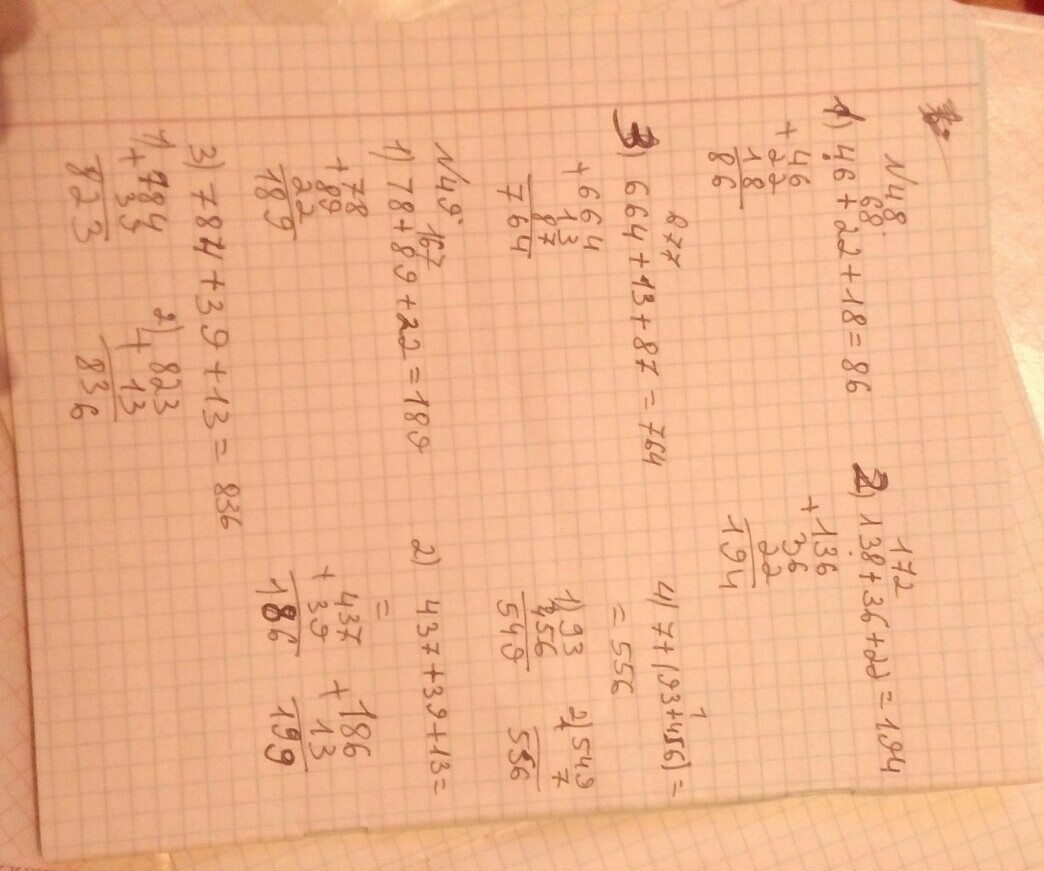 N48.
68
1) 46 + 22 + 18 = 86
+ 46
22
18
86
172
2) 138 + 36 + 22 = 194
+ 136
36
22
194
877
3) 664 + 13 + 87 = 764
+ 664
13
87
764
1
4) 7 + (93 + 456) =
= 556
1) 93
456
549
2) 549
+ 7
556
N49.
167
1) 78 + 89 + 22 = 189
+ 78
89
22
189
2) 437 + 39 + 13 =
=
+ 437
39
186
+ 186
13
199
3) 784 + 39 + 13 = 836
1) 784
+ 39
823
2) 823
+ 13
836